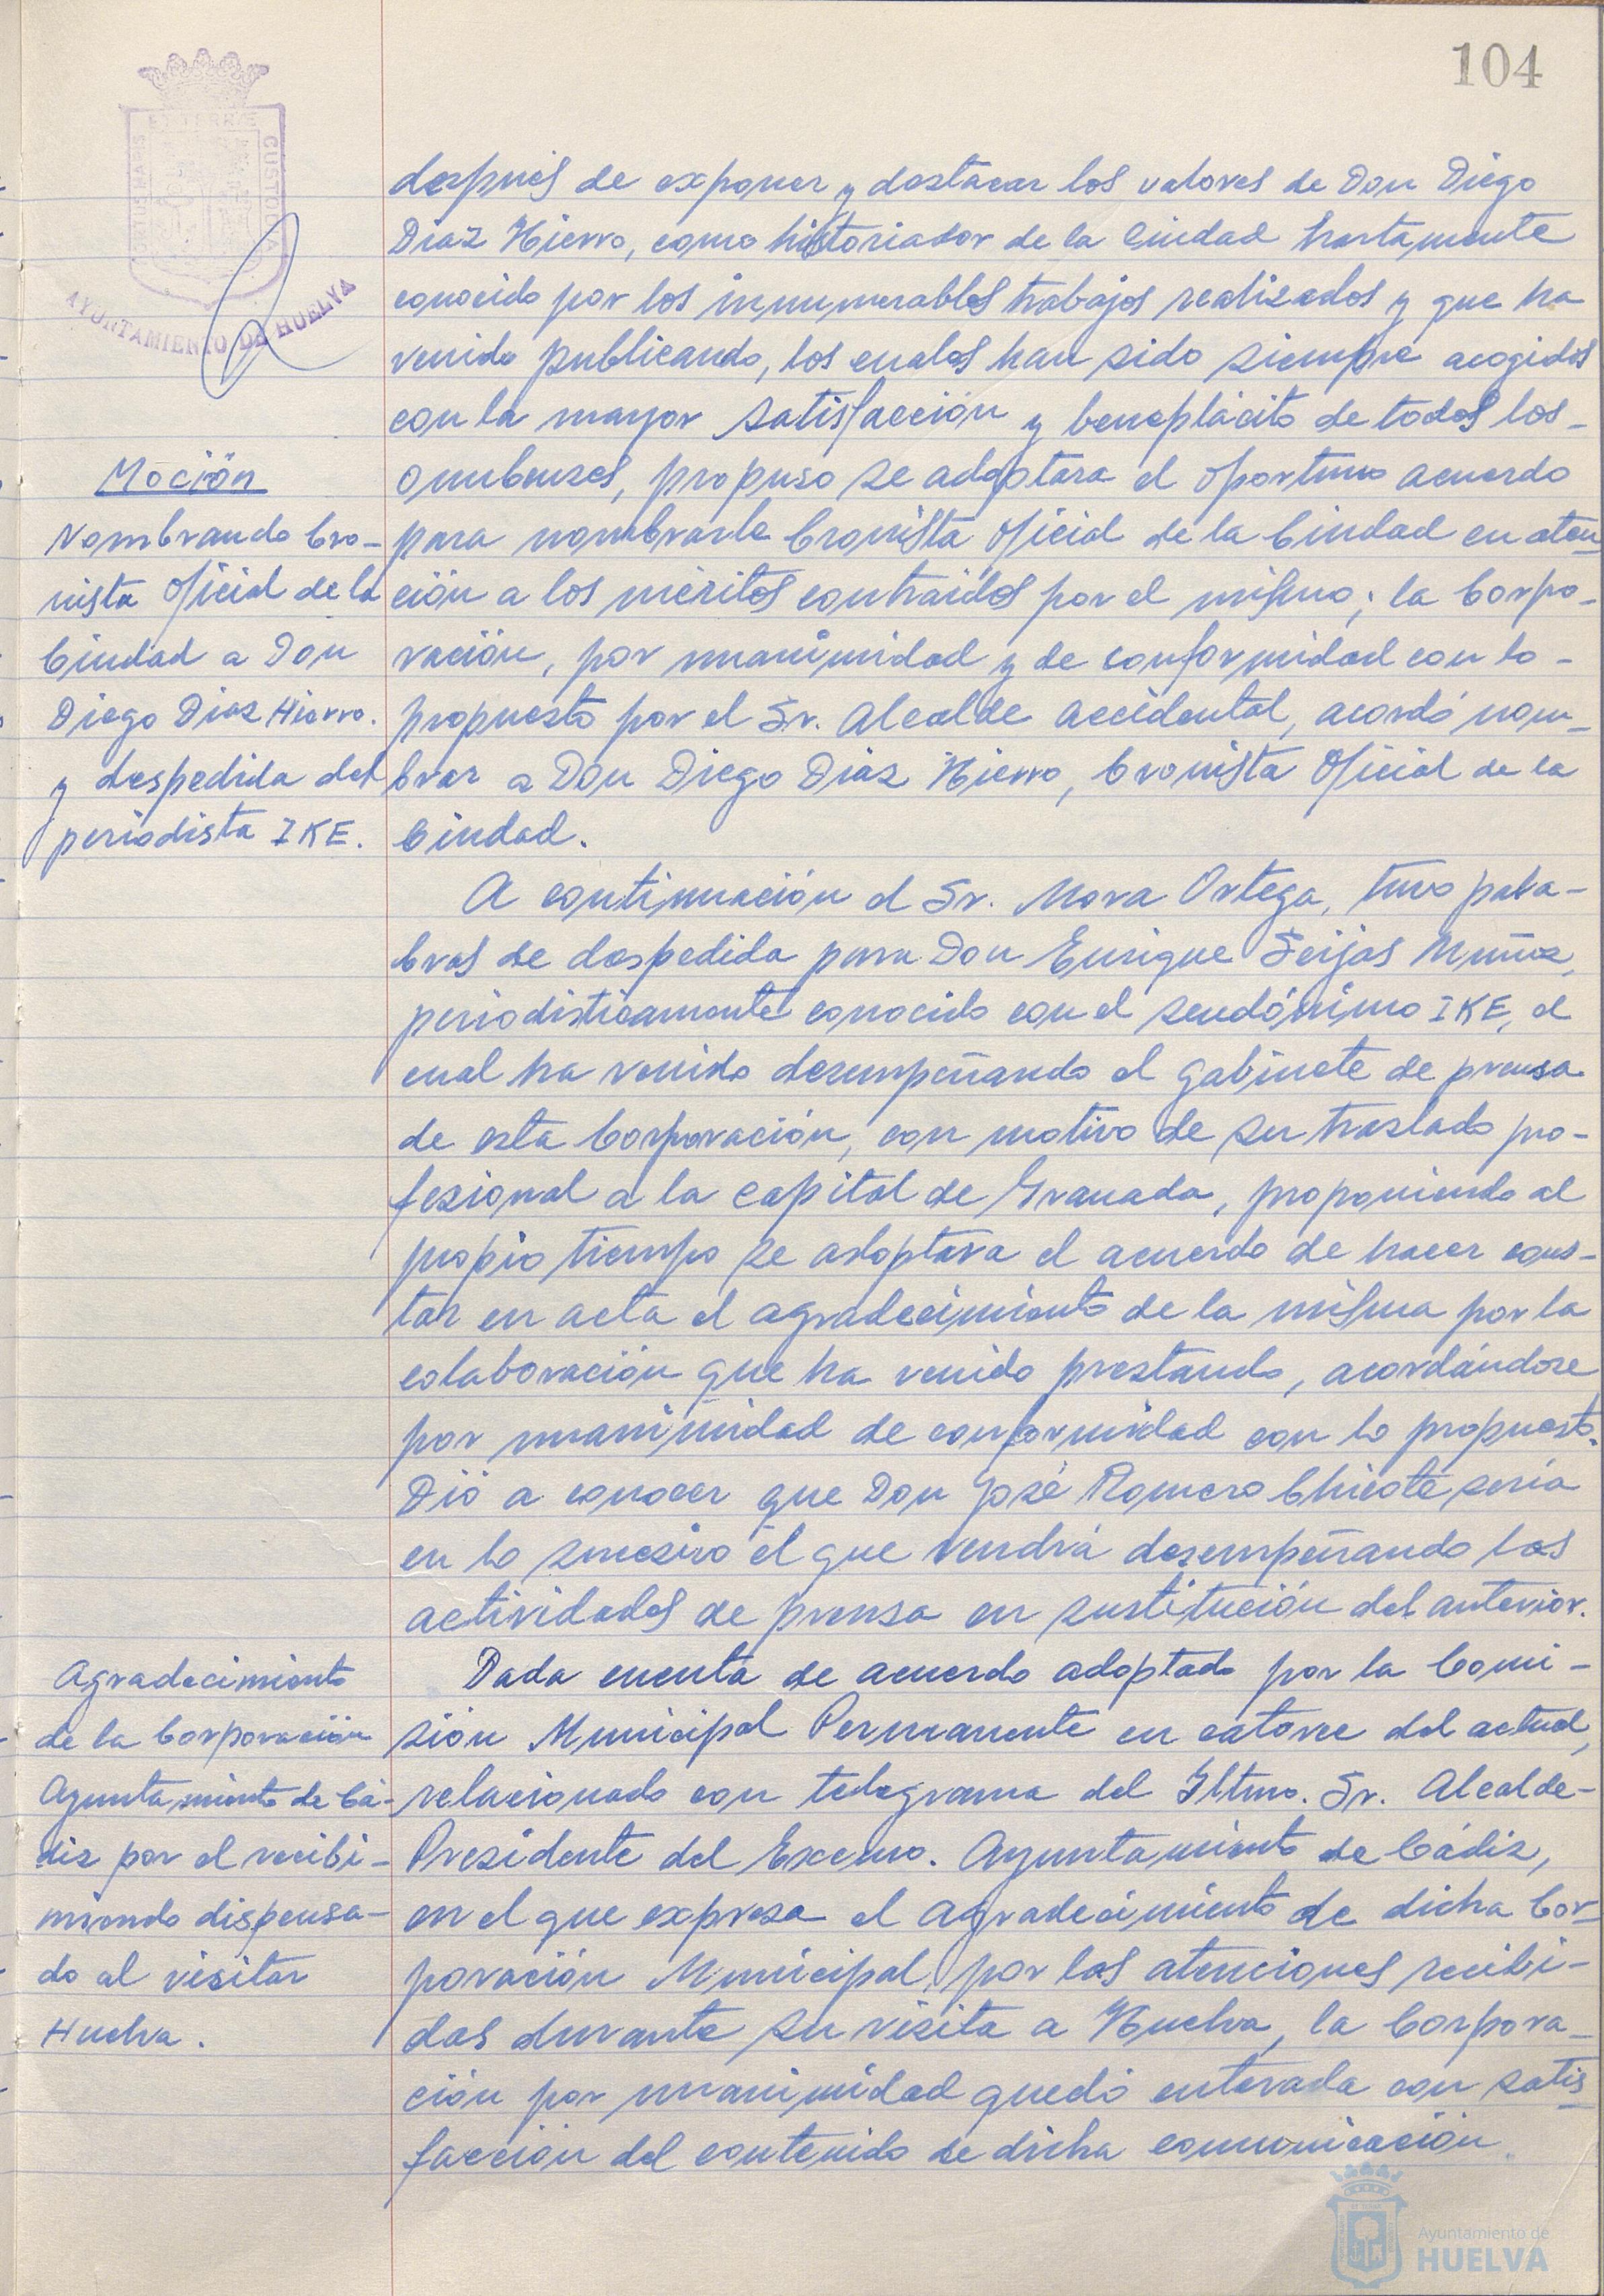 104
PORTUS MARIS ET TERRÆ CUSTODIA
AYUNTAMIENTO DE HUELVA
después de exponer y destacar los valores de Don Diego
Diaz Hierro, como historiador de la Ciudad hartamente
conocido por los innumerables trabajos realizados y que ha
venido publicando, los cuales han sido siempre acogidos
con la mayor satisfacción y beneplácito de todos los-
onubenses, propuso se adoptara el oportuno acuerdo
para nombrarle Cronista Oficial de la Ciudad en aten-
ción a los méritos contraídos por el mismo; la Corpo-
ración, por unanimidad y de conformidad con lo-
propuesto por el Sr. Alcalde accidental, acordó nom-
brar a Don Diego Diaz Hierro, Cronista Oficial de la
Ciudad.
Moción
Nombrando Cro-
nista Oficial de la
Ciudad a Don
Diego Diaz Hierro.
y despedida del
periodista IKE.
A continuación el Sr. Mora Ortega, tuvo pala-
bras de despedida para Don Enrique Seijas Muñoz,
periodisticamente conocido con el seudónimo IKE, el
cual ha venido desempeñando el gabinete de prensa
de esta Corporación, con motivo de su traslado pro-
fesional a la capital de Granada, proponiendo al
propio tiempo se adoptara el acuerdo de hacer cons-
tar en acta el agradecimiento de la misma por la
colaboración que ha venido prestando, acordándose
por unanimidad de conformidad con lo propuesto.
Dió a conocer que Don José Romero Chicote sería
en lo sucesivo el que vendrá desempeñando las
actividades de prensa en sustitución del anterior.
Agradecimiento
de la Corporación
Ayuntamiento de Cá-
diz por el recibi-
miendo dispensa-
do al visitar
Huelva.
Dada cuenta de acuerdo adoptado por la Comi-
sión Municipal Permanente en catorce del actual,
relacionado con telegrama del Iltmo. Sr. Alcalde-
Presidente del Excmo. Ayuntamiento de Cádiz,
en el que expresa el agradecimiento de dicha Cor-
poración Municipal, por las atenciones recibi-
das durante su visita a Huelva, la Corpora-
ción por unanimidad quedó enterada con satis-
facción del contenido de dicha comunicación.
Ayuntamiento de
HUELVA